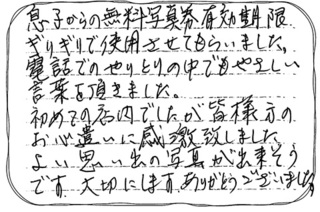 息子からの無料写真券有効期限
ぎりぎりで使用させてもらいました。
電話でのやりとりの中でもやさしい
言葉を頂きました。
初めての店内でしたが皆様方の
お心遣いに感激致しました。
よい思い出の写真が出来そう
です。大切にします。ありがとうございました。